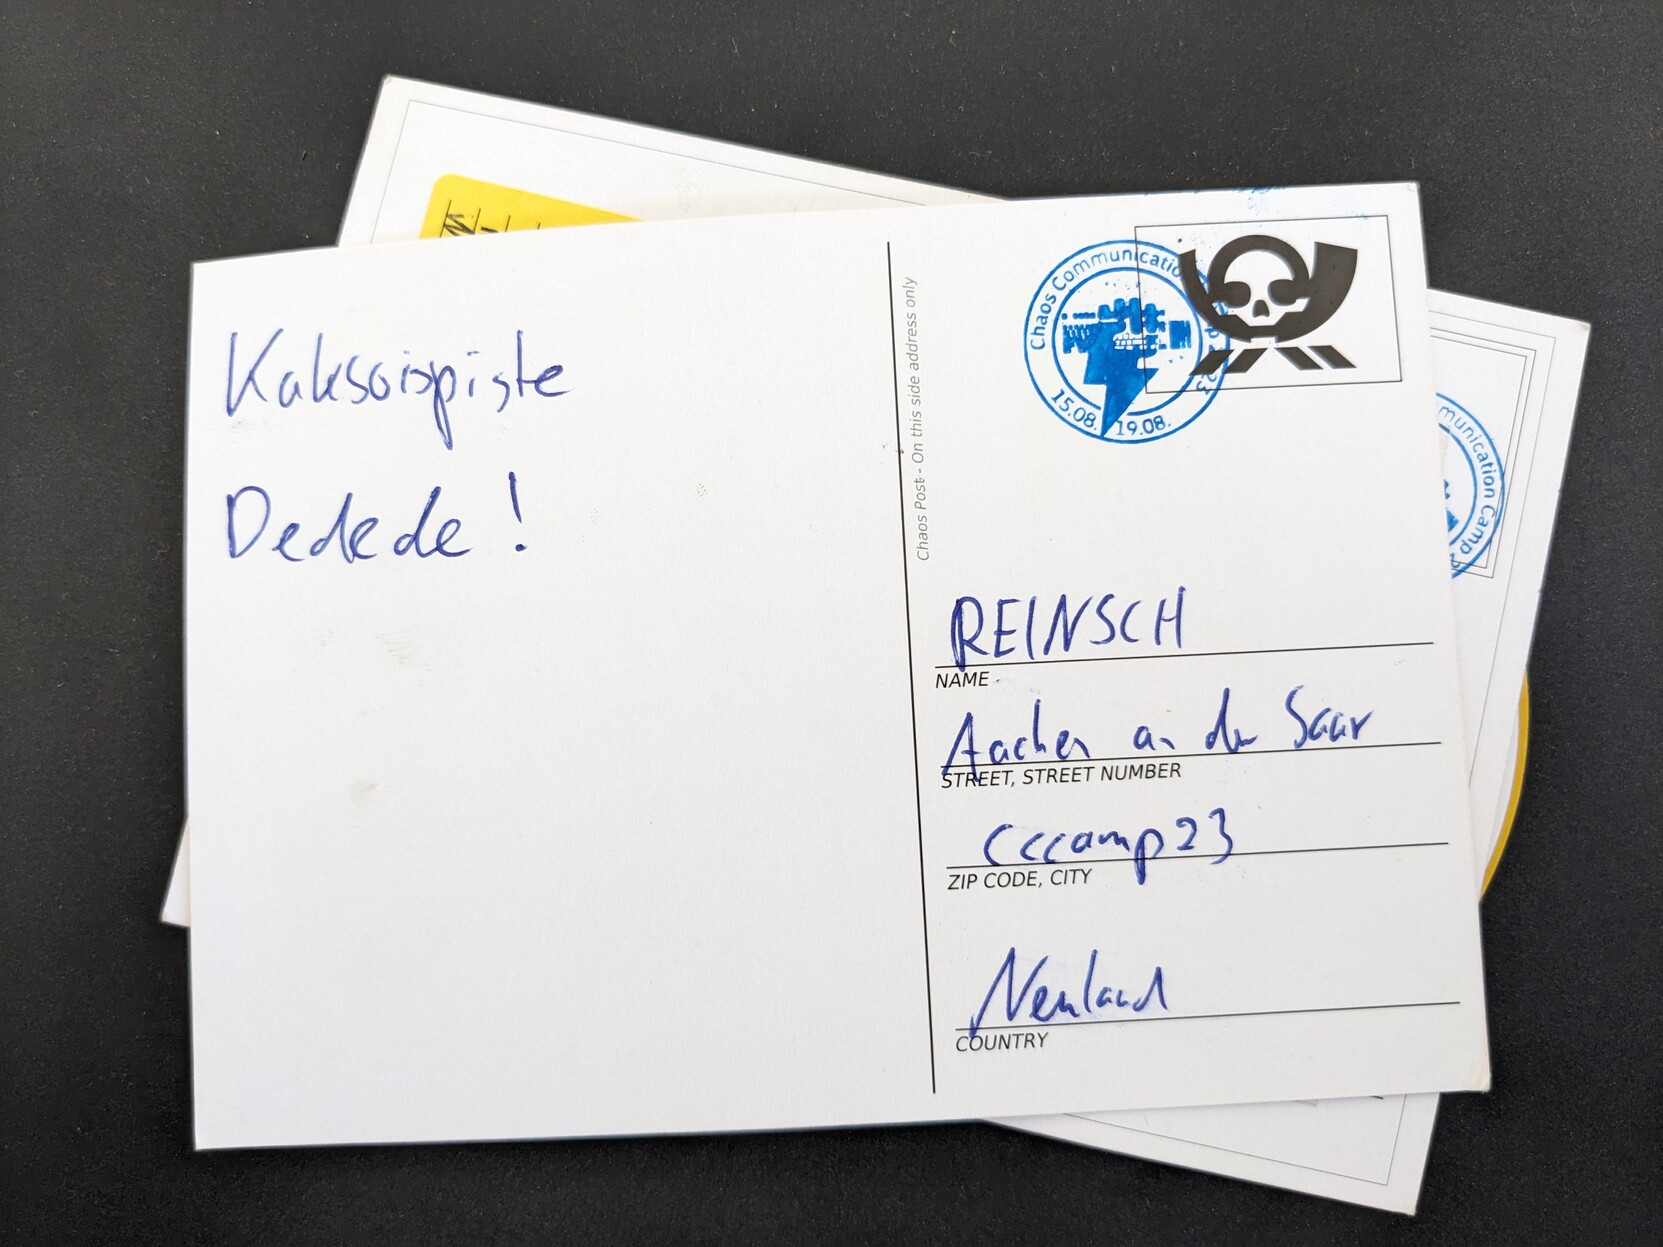 Kaksoispiste
Dedede !
Chaos Post - On this side address only
Chaos Communication
15.08. 19.08.
REINSCH
NAME
Aachen an der Saar
STREET, STREET NUMBER
cccamp23
ZIP CODE, CITY
Neuland
COUNTRY
munication Camp